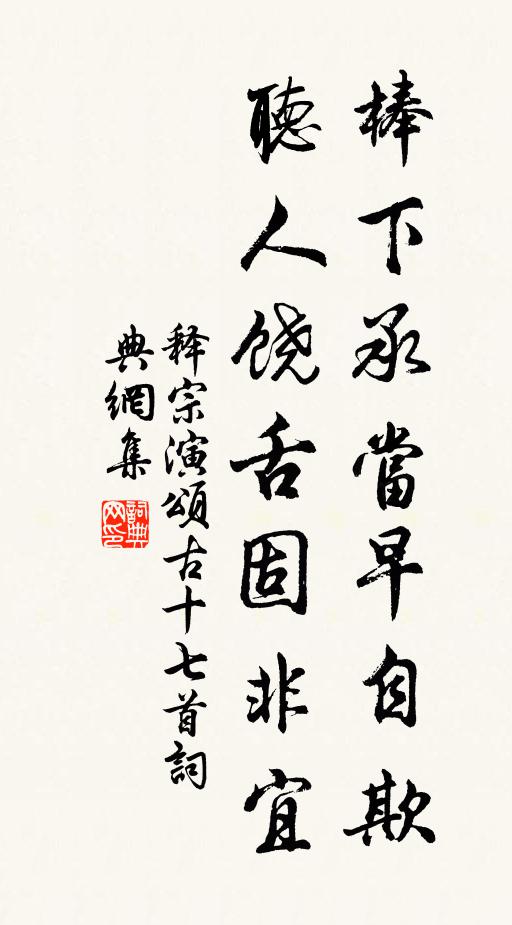 棒下承當早自欺
聽人饒舌固非宜
释宗演頌古十七首詞
典網集
詞典
网印